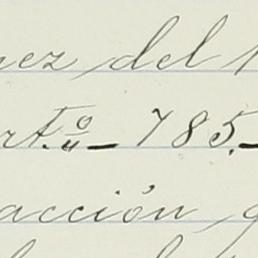 nez del
rt.º 785.
acción